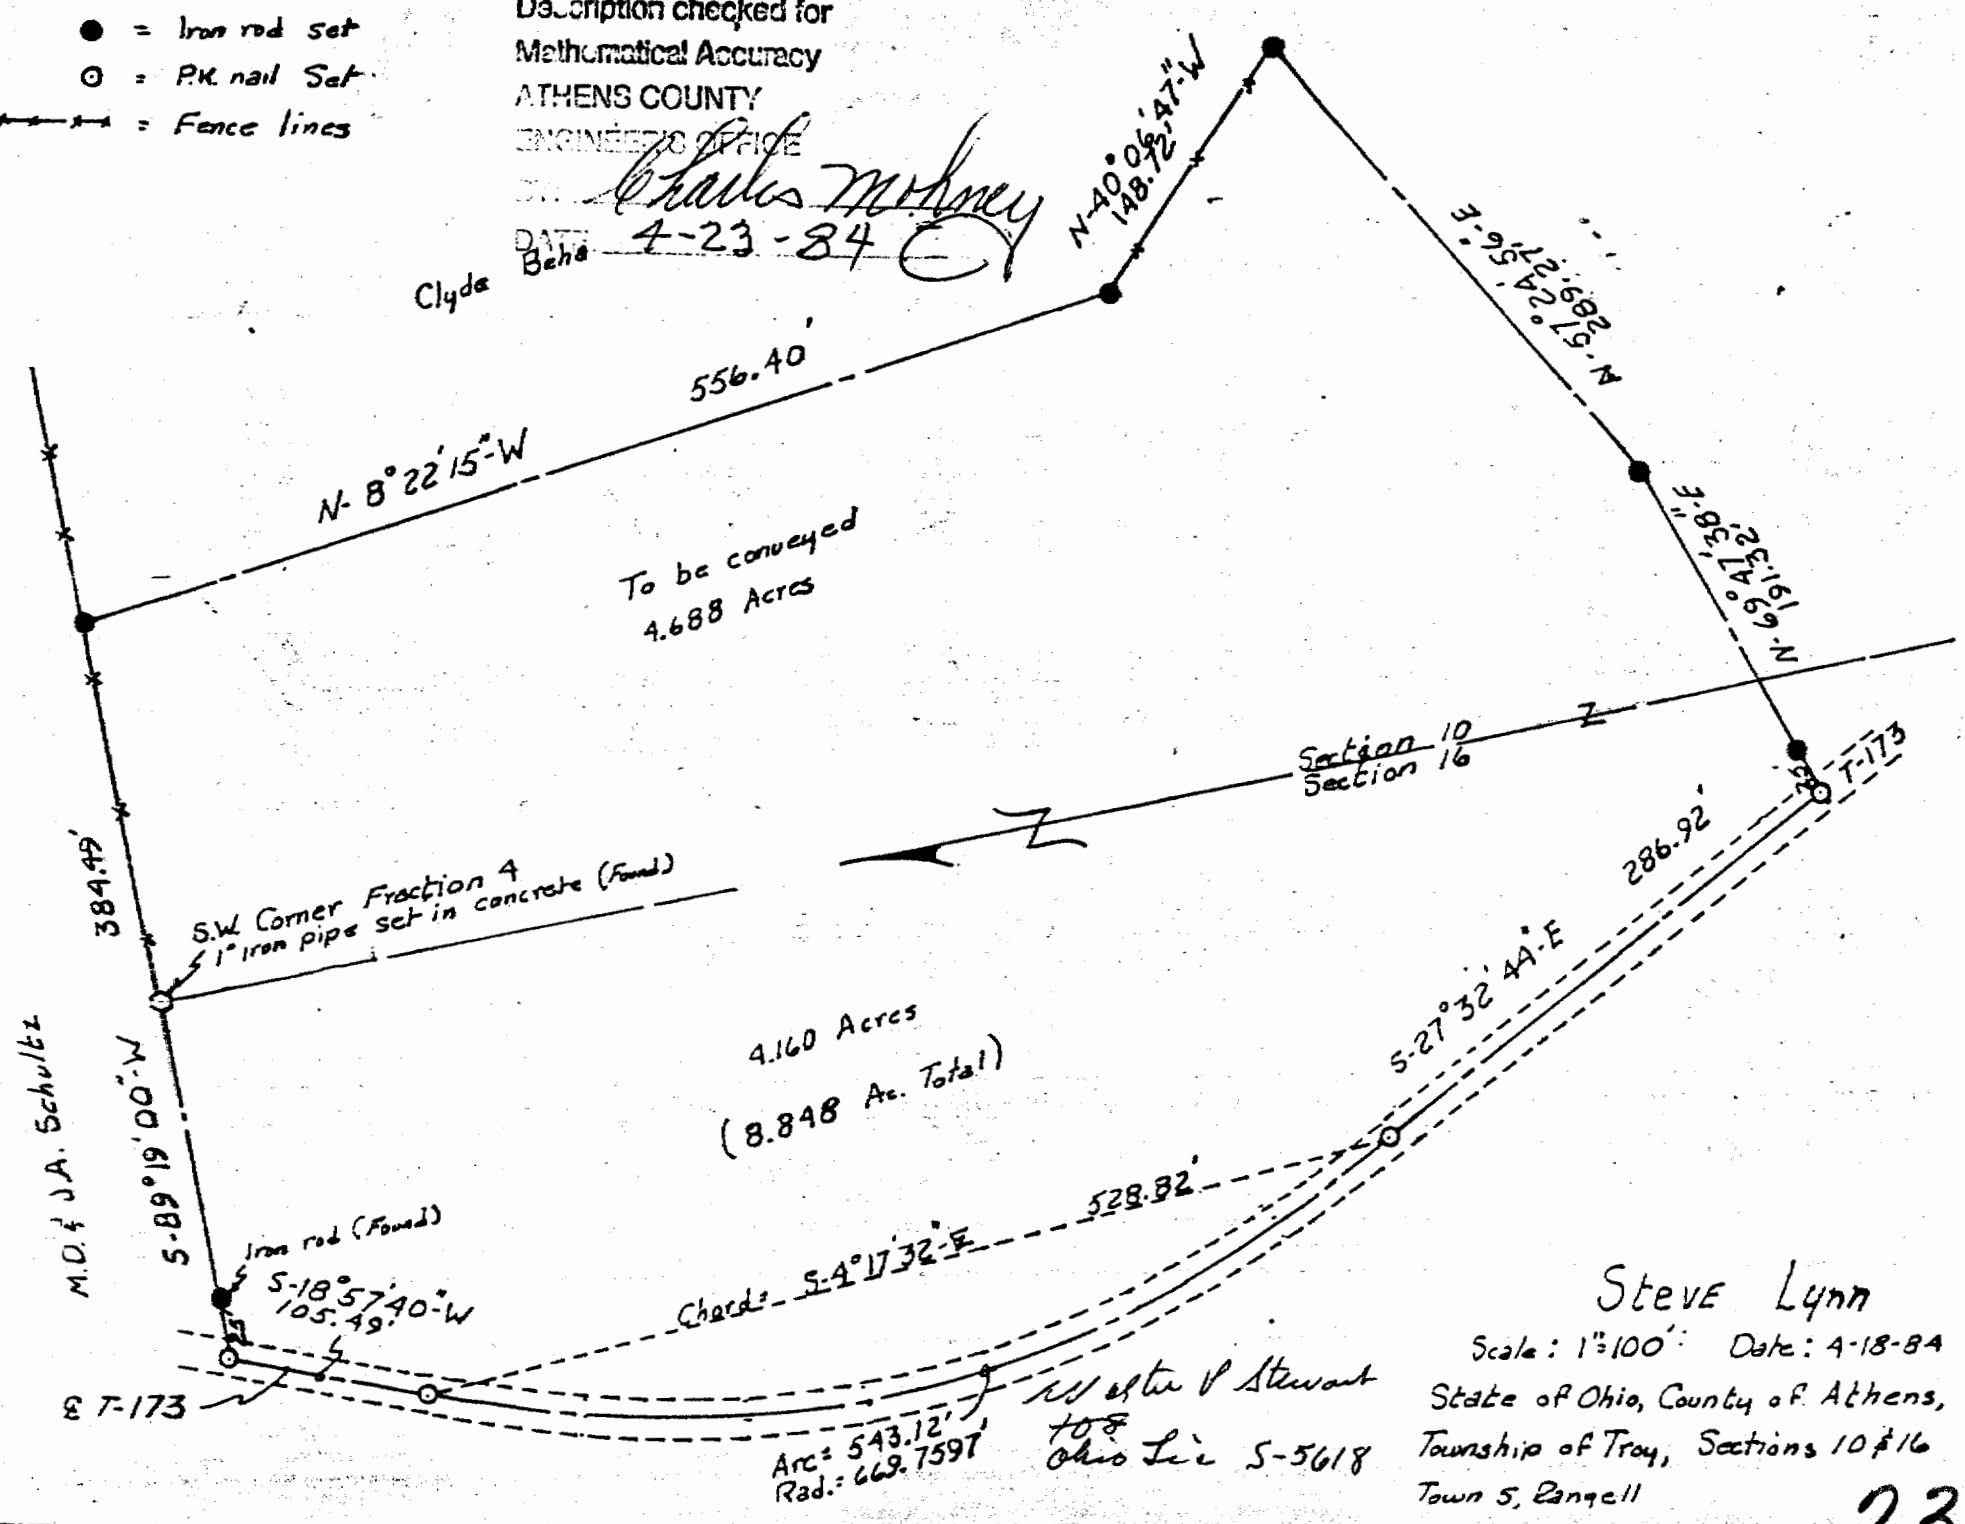 ● = Iron rod set
⊙ = P.K. nail Set
= Fence lines
Description checked for
Mathematical Accuracy
ATHENS COUNTY
ENGINEER'S OFFICE
BY: Charles Mohney
DATE 4-23-84
Clyde Beha
N-40°06'47"-W
148.72'
N-57°24'56"-E
289.27'
556.40'
N-8°22'15"-W
N-69°47'38"-E
191.32'
To be conveyed
4.688 Acres
Section 10
Section 16
Z
Z
25'
T-173
384.49'
S.W. Corner Fraction 4
1" Iron pipe set in concrete (Found)
286.92'
S-27°32'44"-E
M.D. & J.A. Schultz
S-89°19'00"-W
4.160 Acres
(8.848 Ac. Total)
528.82'
Chord= S-4°17'32"-E
Iron rod (Found)
S-18°57'40"-W
105.49'
25'
℄ T-173
Arc= 543.12'
Rad.= 669.7597'
Stewart
Ohio Lic S-5618
Steve Lynn
Scale: 1"=100' Date: 4-18-84
State of Ohio, County of Athens,
Township of Troy, Sections 10 & 16
Town 5, Range 11
23